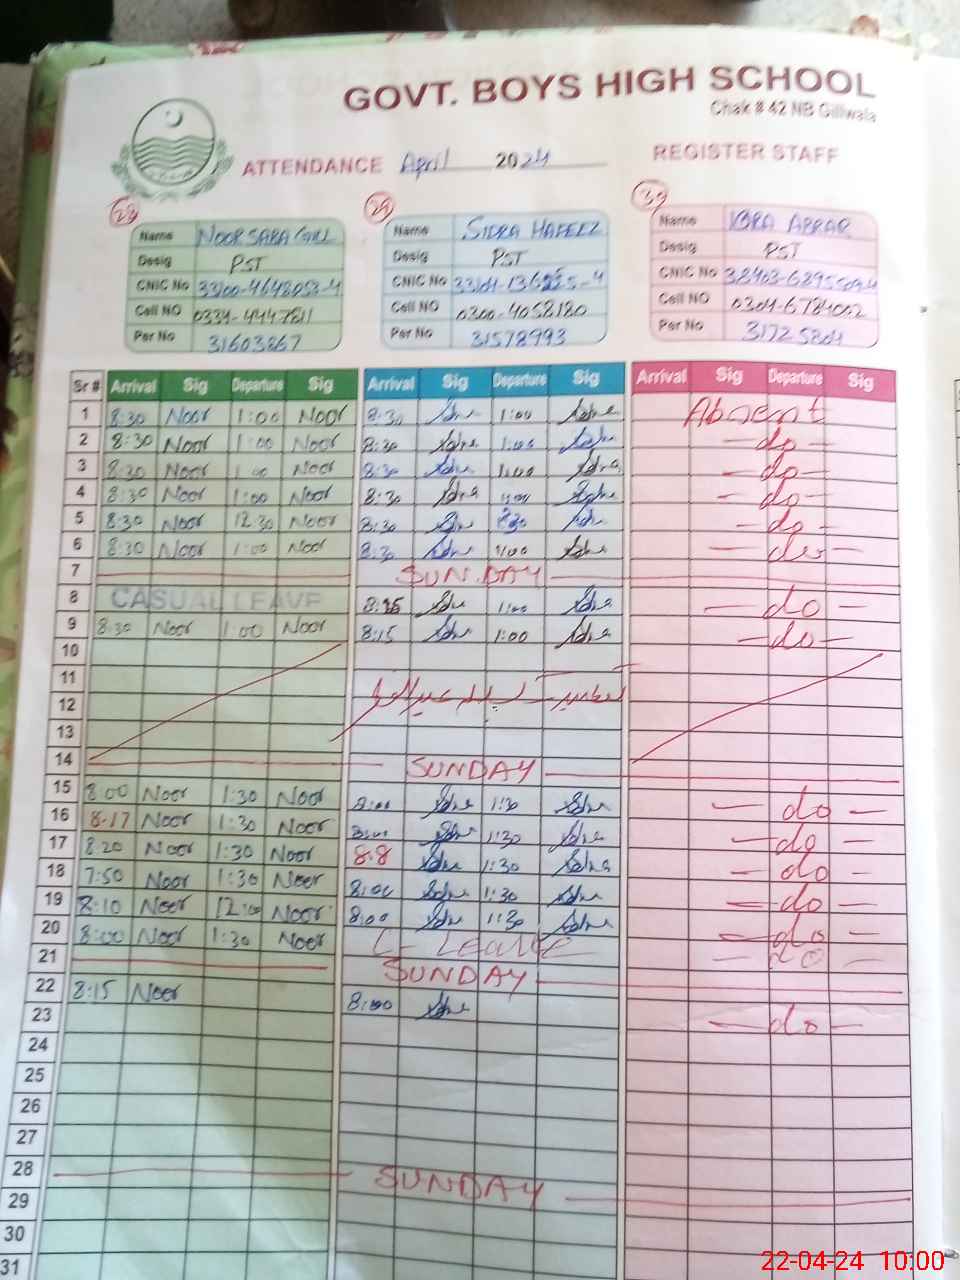 GOVT. BOYS HIGH SCHOOL
Chak # 42 NB Gillwala
ATTENDANCE April 2024 REGISTER STAFF
28 29 30
Name NOOR SABA GILL Name SIDRA HAFEEZ Name IQRA ABRAR
Desig PST Desig PST Desig PST
CNIC No CNIC No CNIC No
Cell NO 0334-4447811 Cell NO 0300-4058180 Cell NO 0304-6784002
Per No 31603867 Per No 31578993 Per No 31725304
Sr # Arrival Sig Departure Sig Arrival Sig Departure Sig Arrival Sig Departure Sig
1 8:30 Noor 1:00 Noor 8:30 1:00 Absent
2 8:30 Noor 1:00 Noor 8:30 1:00 - do -
3 8:30 Noor 1:00 Noor 8:30 1:00 - do -
4 8:30 Noor 1:00 Noor 8:30 1:00 - do -
5 8:30 Noor 12:30 Noor 8:30 - do -
6 8:30 Noor 1:00 Noor 8:30 1:00 - do -
7 SUNDAY
8 CASUAL LEAVE 8:15 1:00 - do -
9 8:30 Noor 1:00 Noor 8:15 1:00 - do -
10
11
12
13
14 SUNDAY
15 8:00 Noor 1:30 Noor 8:00 1:30 - do -
16 8-17 Noor 1:30 Noor 8:00 1:30 - do -
17 8:20 Noor 1:30 Noor 8:8 1:30 - do -
18 7:50 Noor 1:30 Noor 8:00 1:30 - do -
19 8:10 Noor 12:00 Noor 8:00 1:30 - do -
20 8:00 Noor 1:30 Noor C-Leave - do -
21 SUNDAY
22 8:15 Noor 8:00 - do -
23
24
25
26
27
28 SUNDAY
29
30
31
22-04-24 10:00